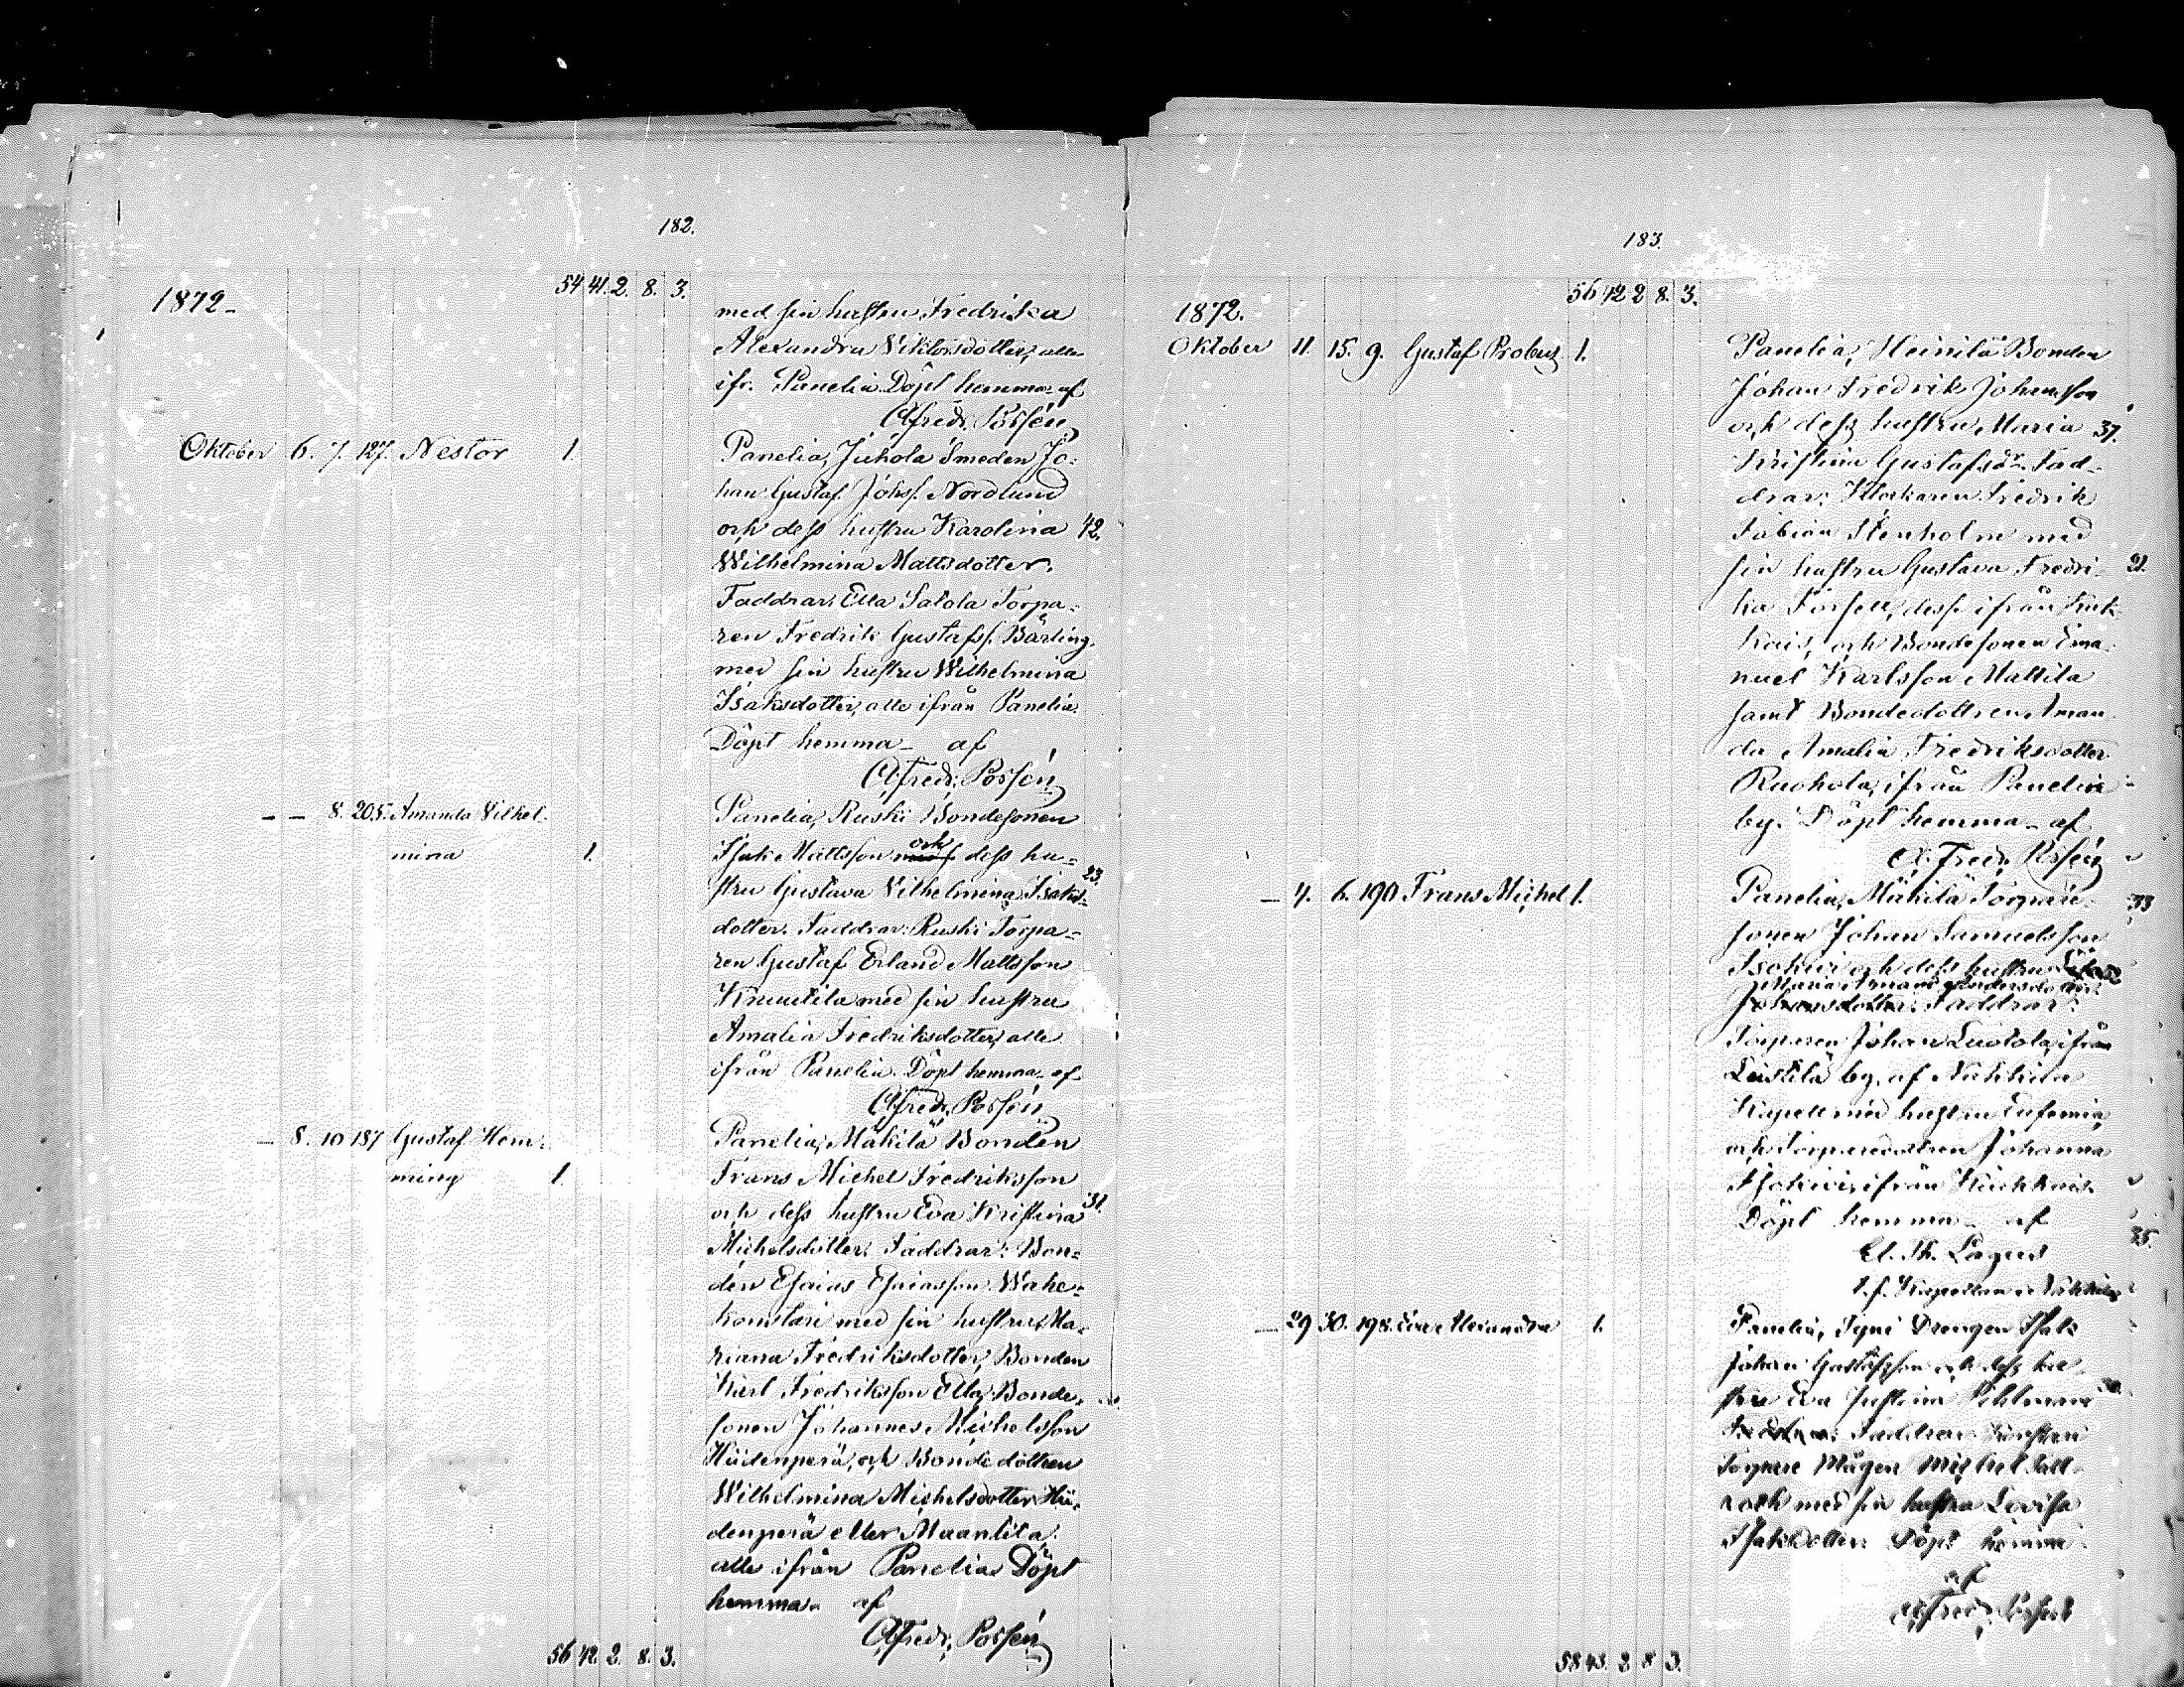 182.
54 41. 2. 8. 3.
1872-
med sin hustru Fredrika
Alexandra Viktorsdotter, alla
ifr. Panelia. Döpt hemma af
Alfred Posséen
Oktober 6. 7. 127. Nestor 1.
Panelia, Juhola Smeden Jo-
han Gustaf Johss. Nordlund
och dess hustru Karolina 42.
Wilhelmina Mattsdotter.
Faddrar: Ella Salola Torpa-
ren Fredrik Gustafss. Bärling
med sin hustru Wilhelmina
Isaksdotter, alla ifrån Panelia.
Döpt hemma - af
Alfred Posséen
— — 8. 205. Amanda Vilhel-
mina 1.
Panelia, Ruski Bondesonen
Isak Mattsson och dess hu-
stru Gustava Vilhelmina Isaks- 23.
dotter. Faddrar: Ruski Torpa-
ren Gustaf Erland Mattsson
Knuutila med sin hustru
Amalia Fredriksdotter, alla
ifrån Panelia. Döpt hemma af
Alfred Posséen
— 8. 10 187 Gustaf Hem-
ming 1.
Panelia, Mäkilä Bonden
Frans Michel Fredriksson
och dess hustru Eva Kristina 31.
Michelsdotter. Faddrar: Bon-
den Esaias Esaiasson Wahe-
konstari med sin hustru Ma-
riana Fredriksdotter, Bonden
Karl Fredriksson Ella, Bonde-
sonen Johannes Michelsson
Hiidenperä, och Bondedottren
Wilhelmina Michelsdotter Hii-
denperä eller Maantila,
alla ifrån Panelia Döpt
hemma - af
Alfred Posséen
56 42 2. 8. 3.
183.
56 42 2 8. 3.
1872.
Oktober 11. 15. 9. Gustaf Probus 1.
Panelia, Heinilä Bonden
Johan Fredrik Johansson
och dess hustru Maria 37.
Kristina Gustafsdr. Fad-
drar: Klockaren Fredrik
Fabian Stenholm med
sin hustru Gustava Fredri-
ka Forsell, desse ifrån Kiuk-
kais, och Bondesonen Ema-
nuel Karlsson Mattila
samt Bondedottren Aman-
da Amalia Fredriksdotter
Ruohola, ifrån Panelia
by. Döpt hemma - af
Alfred Posséen
— 4. 6. 190 Frans Michel 1.
Panelia, Mäkilä Torpare-
sonen Johan Samuelsson
Isokivi och dess hustru
Maria Amanda Andersdotter
Faddrar:
Torparen Johan Luotola, ifrån
Leistilä by af Nakkila
Kapell med hustru Eufemia,
och Torparedottren Johanna
Isokivi, ifrån Kiukkais.
Döpt hemma - af
Th. Lagus
t. f. Kapellan i Nakkila
— 29 30. 198. Eva Alexandra 1.
Panelia, Syni Drengen Isak
Johan Gustafsson och dess hu-
stru Eva Justina
Faddrar:
Torpare Mågen Michel Sall-
roth med sin hustru Lovisa
Isaksdotter. Döpt hemma
af
Alfred Posséen
58 43. 2 8 3.